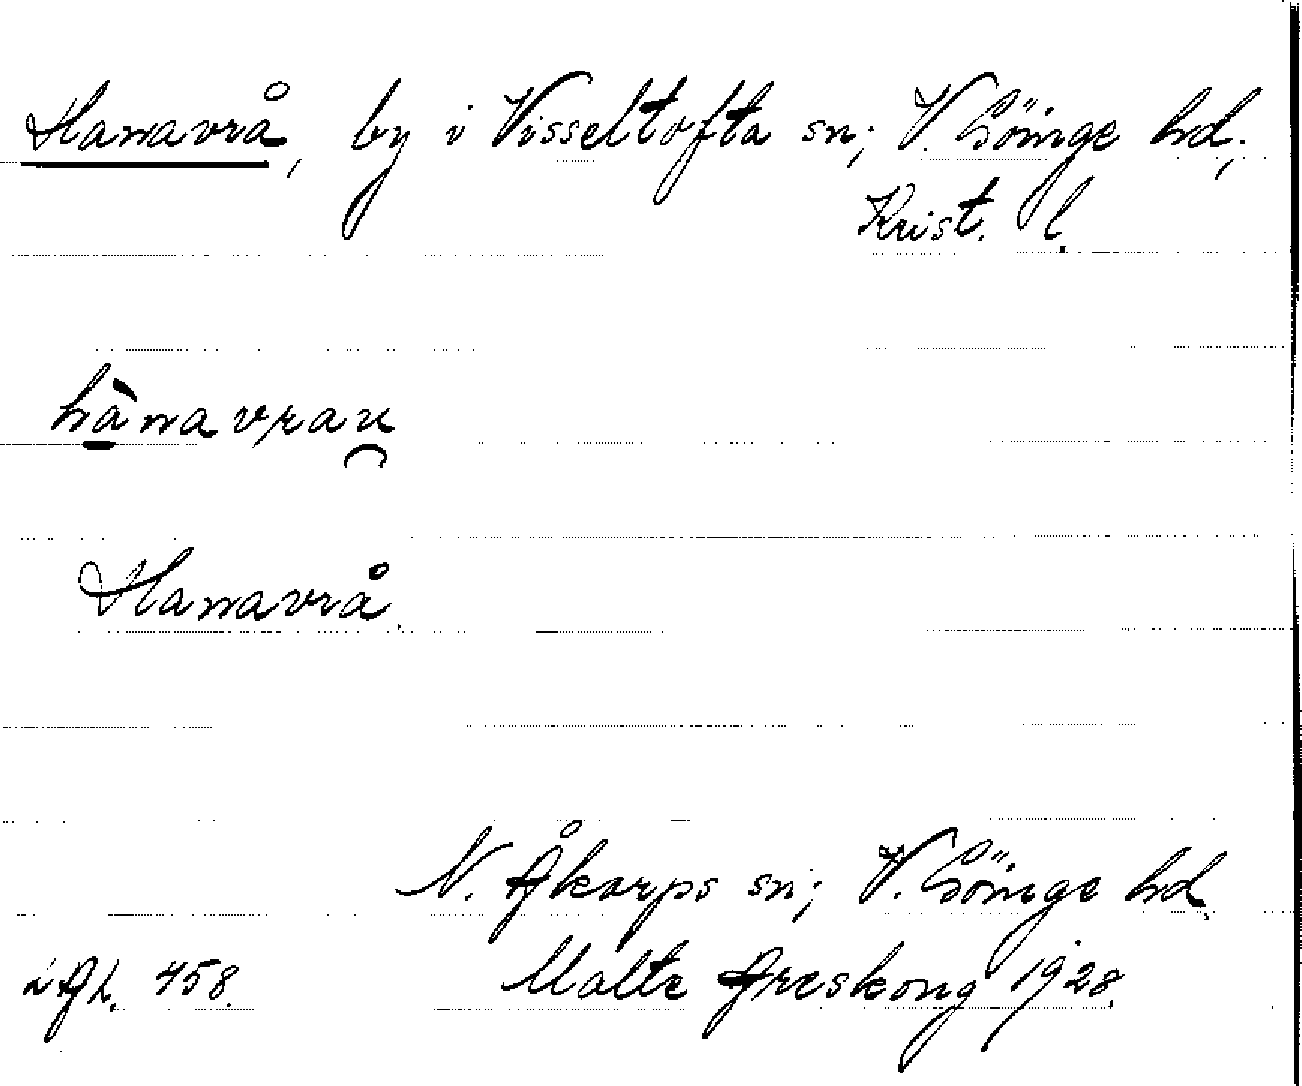 Hanavrå, by i Visseltofta sn; V. Göinge hd;
Krist. l.
hànavrau̯
Hanavrå.
N. Åkarps sn; V. Göinge hd.
LAL. 458. Malte Areskoug 1928.